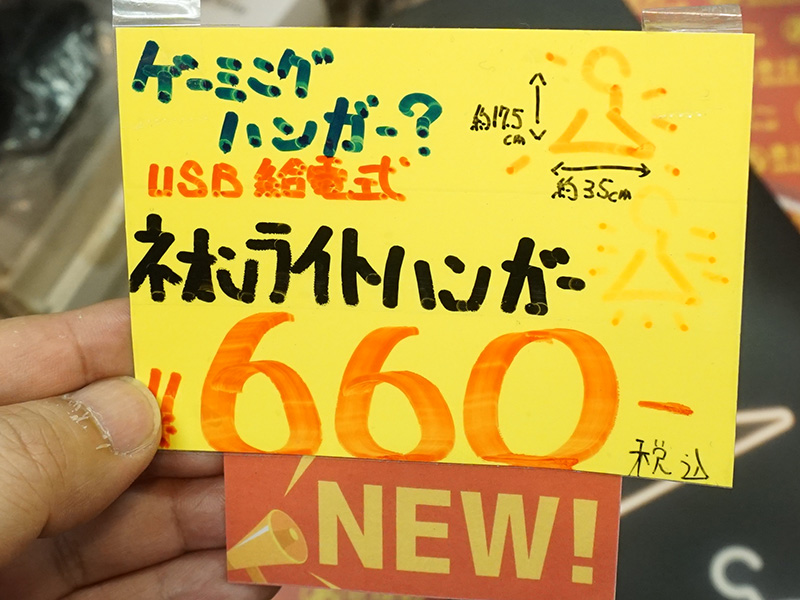 ゲーミング
ハンガー?
約17.5
cm
USB給電式
約35cm
ネオンライトハンガー
¥660-
税込
NEW!